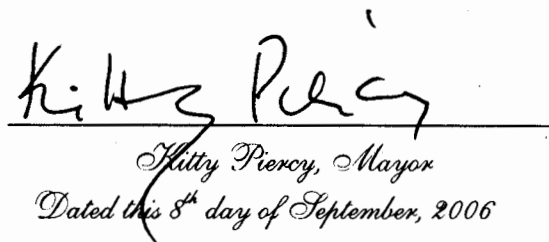 Kitty Piercy
Kitty Piercy, Mayor
Dated this 8th day of September, 2006